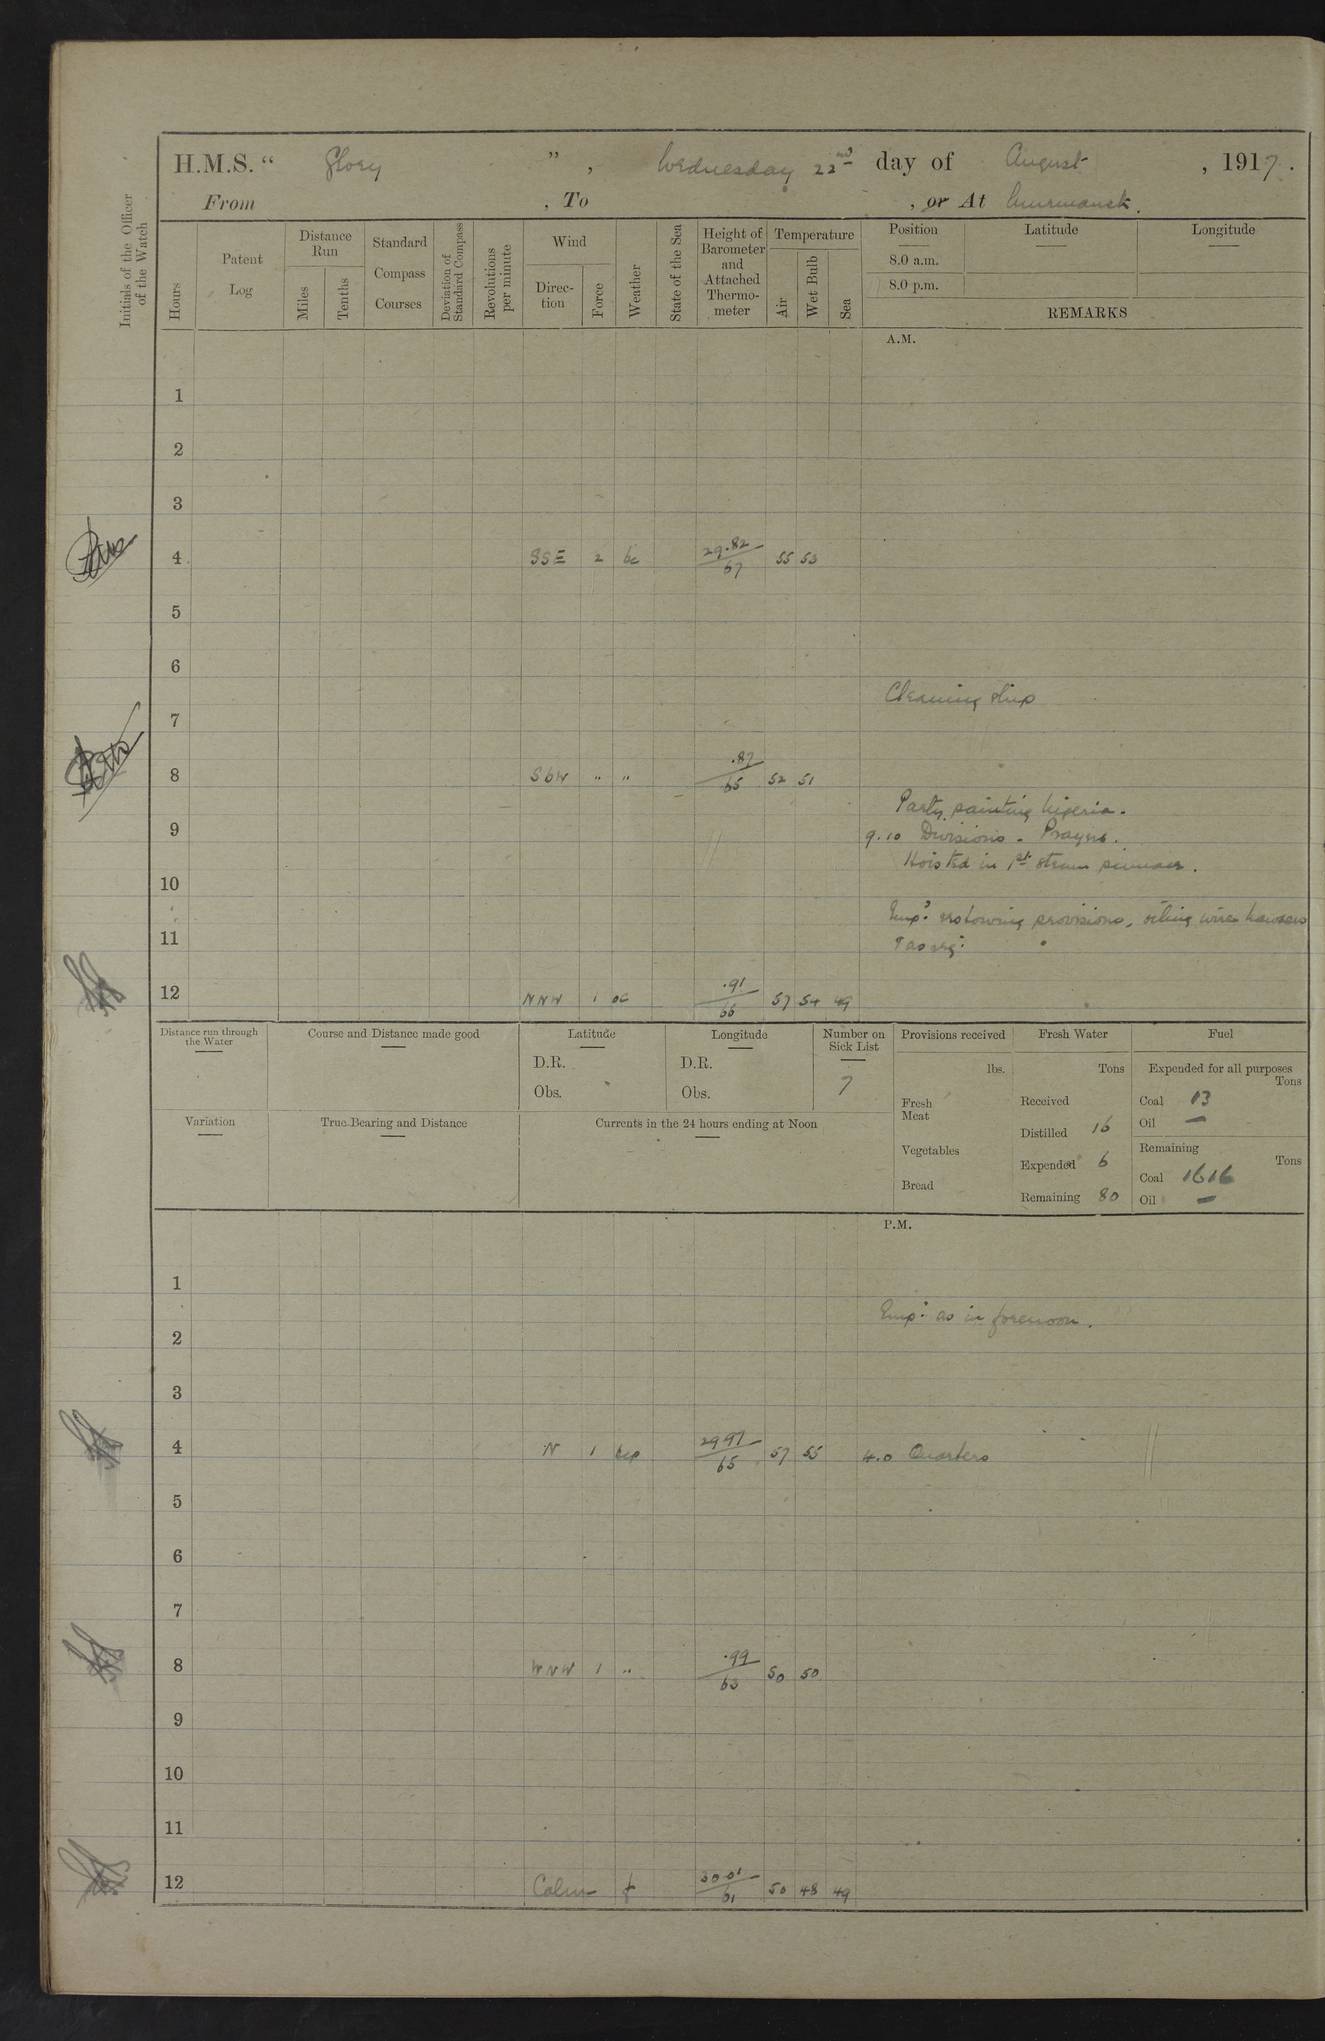 H.M.S. " Glory " , Wednesday 22nd day of August , 1917.
From , To , or At Murmansk.
Initials of the Officer of the Watch
Hours
Patent Log
Distance Run
Miles
Tenths
Standard Compass Courses
Deviation of Standard Compass
Revolutions per minute
Wind
Direction
Force
Weather
State of the Sea
Height of Barometer and Attached Thermometer
Temperature
Air
Wet Bulb
Sea
Position Latitude Longitude
8.0 a.m.
8.0 p.m.
REMARKS
A.M.
1
2
3
4 SSE 2 bc 29.82/67 55 53
5
6
Cleaning ship
7
8 SbW " " .87/65 52 51
Party painting Nigeria.
9
9.10 Divisions - Prayers.
Hoisted in 1st steam pinnace.
10
Empd. restowing provisions, oiling wire hawsers
11
& as req:
12 NNW 1 oc .91/66 57 54 49
Distance run through the Water
Course and Distance made good
Latitude
D.R.
Obs.
Longitude
D.R.
Obs.
Number on Sick List
7
Provisions received
lbs.
Fresh Meat
Vegetables
Bread
Fresh Water
Tons
Received
Distilled 16
Expended 6
Remaining 80
Fuel
Expended for all purposes
Tons
Coal 13
Oil —
Remaining
Tons
Coal 1616
Oil —
Variation
True Bearing and Distance
Currents in the 24 hours ending at Noon
P.M.
1
Emp: as in forenoon.
2
3
4 N 1 bcp 29 97/65 57 55 4.0 Quarters
5
6
7
8 WNW 1 " .99/63 50 50
9
10
11
12 Calm f 30 01/61 50 48 49